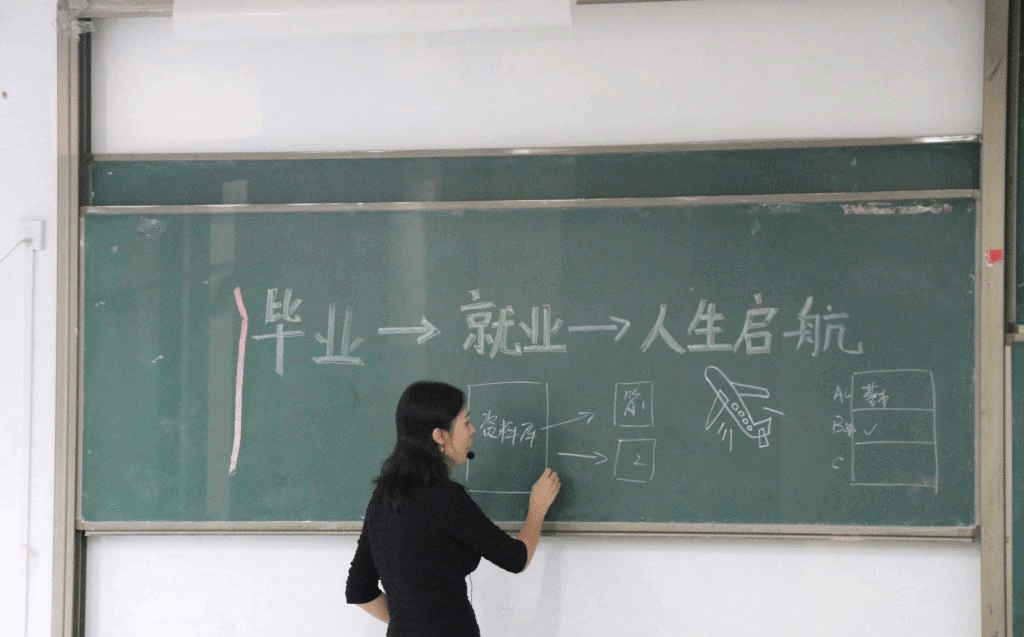 毕业→就业→人生启航
资料库
1
2
A
基本
B
✓
C